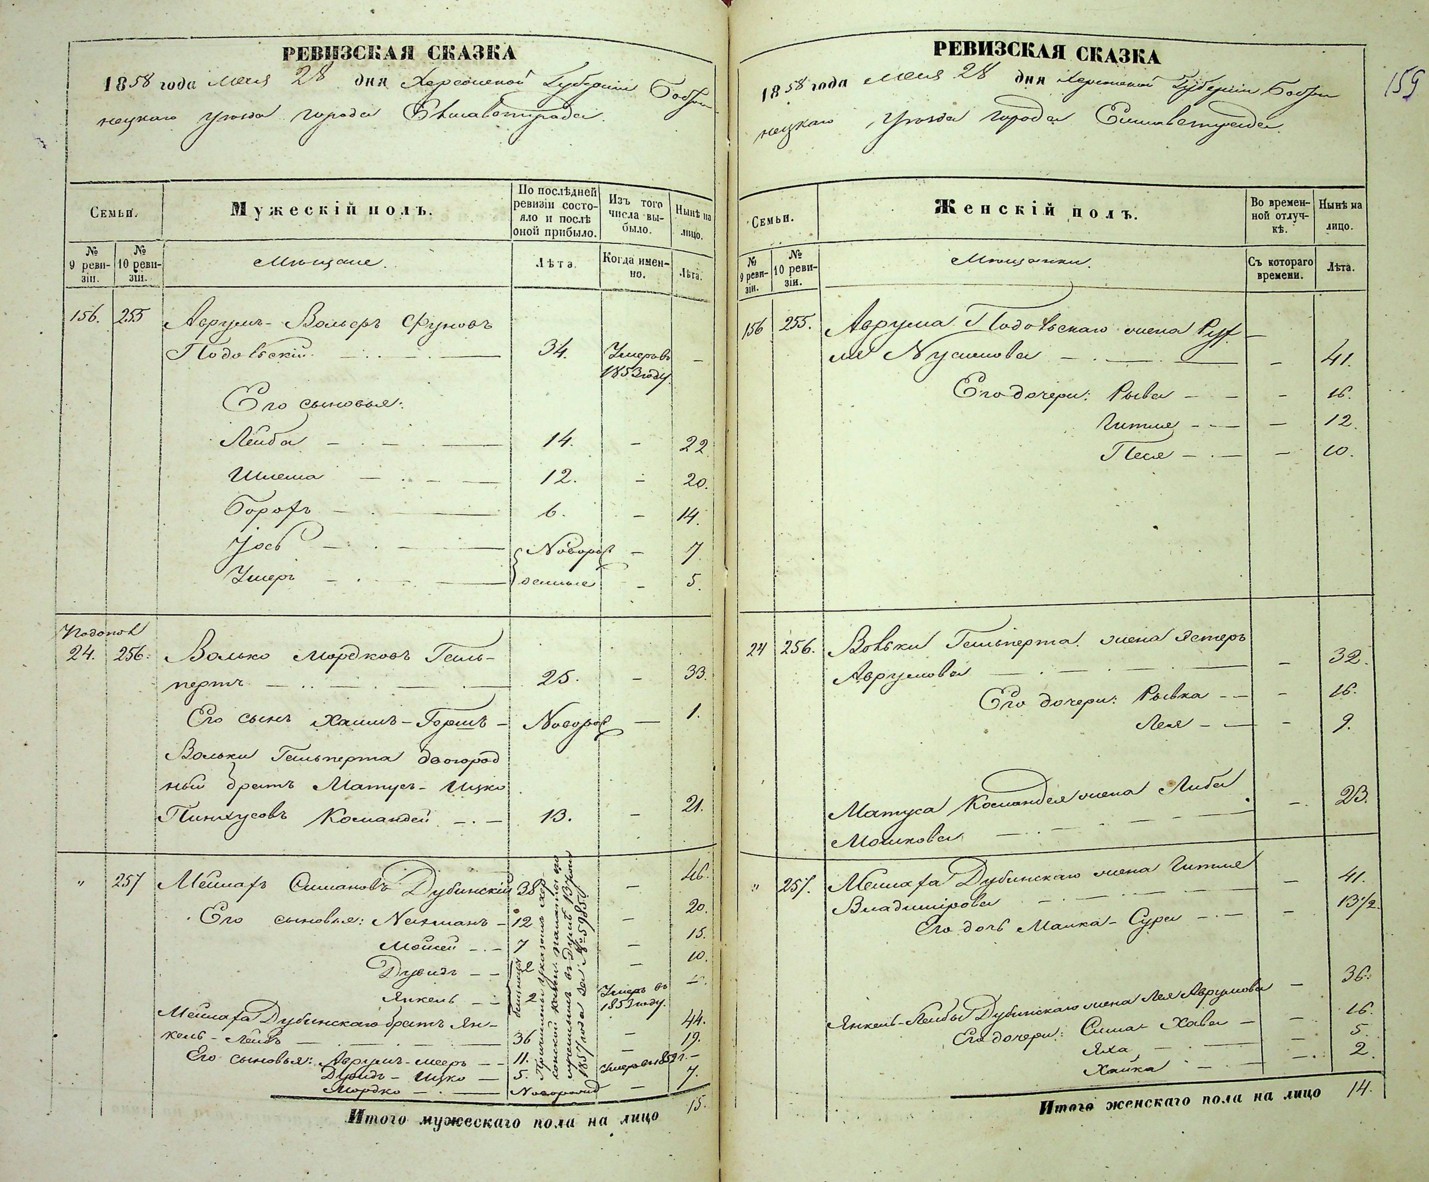 РЕВИЗСКАЯ СКАЗКА
1858 года Мая 28 дня Херсонской Губернии Бобри
нецкаго уезда города Елисаветграда.
Семьи. Мужескій полъ. По послѣдней ревизіи состояло и послѣ оной прибыло. Изъ того числа выбыло. Нынѣ на лицо.
№ 9 ревизіи. № 10 ревизіи. Мещане. Лѣта. Когда именно. Лѣта.
156. 255 Аврумъ-Вольфъ Сруловъ
Подольскій 34. Умеръ въ 1853 году. –
Его сыновья:
Лейба 14. – 22
Шлема 12. – 20.
Борохъ 6. – 14.
Іось Новорож – 7.
Умеръ денные – 5.
24. 256. Волько Мордковъ Гель-
пертъ 25. – 33.
Его сынъ Хаимъ-Гершъ Новорож – 1.
Вольки Гельперта двоюрод
ный братъ Матусъ-Ицко
Пинхусовъ Командей 13. – 21.
" 257 Мейлахъ Симановъ Дубинскій 38 – 46.
Его сыновья: Нахманъ 12 – 20.
Мойсей 7 – 15.
Дувидъ 2 – 10.
Янкель 2 Умеръ въ 1853 году. –
Мейлаха Дубинскаго братъ Ян-
кель-Лейба 36 – 44.
Его сыновья: Аврумъ-Мееръ 11. – 19.
Дувидъ-Ицко 5. Умеръ –
Мордко Новорожд – 7.
Итого мужескаго пола на лицо 15.
159
РЕВИЗСКАЯ СКАЗКА
1858 года Мая 28 дня Херсонской Губернии Бобри
нецкаго уезда города Елисаветграда
Семьи. Женскій полъ. Во временной отлучкѣ. Нынѣ на лицо.
№ 9 ревизіи. № 10 ревизіи. Мещанки. Съ котораго времени. Лѣта.
156 255. Аврума Подольскаго жена Рух
ля Нусимова – 41.
Его дочери: Рыва – 16.
Гитля – 12.
Песя – 10.
24 256. Вольки Гельперта жена Эстеръ
Аврумова – 32.
Его дочери: Рывка – 16.
Лея – 9.
Матуса Командея жена Либа – 23.
Мошкова
" 257. Мейлаха Дубинскаго жена Гитля – 41.
Владимірова
Его дочь Малка-Сура – 13½.
Янкель-Лейбы Дубинскаго жена Лея Аврумова – 36.
Его дочери: Сима-Хава – 16.
Яха – 5.
Хайка – 2.
Итого женскаго пола на лицо 14.